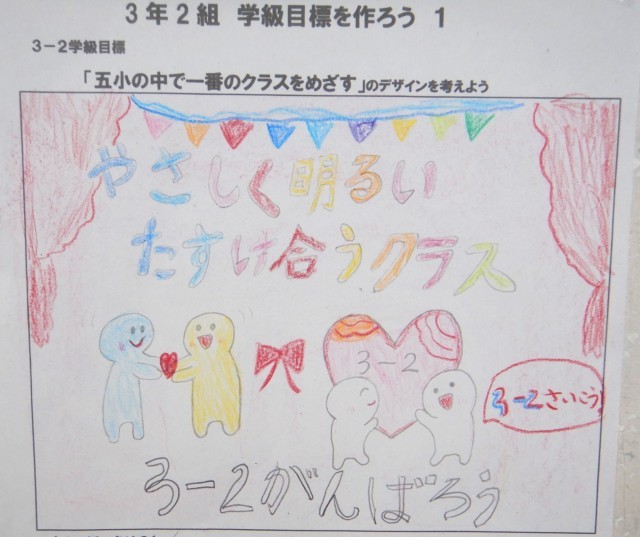 3年2組 学級目標を作ろう 1
3－2学級目標
「五小の中で一番のクラスをめざす」のデザインを考えよう
やさしく明るい
たすけ合うクラス
3-2
3-2さいこう
3-2がんばろう